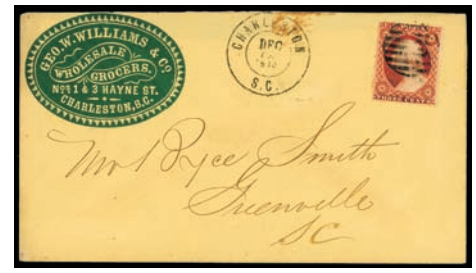 GEO. W. WILLIAMS & CO.
WHOLESALE
GROCERS.
Nos 1 & 3 HAYNE ST.
CHARLESTON, S.C.
CHARLESTON
DEC
S.C.
THREE CENTS
Smith
Greenville
SC